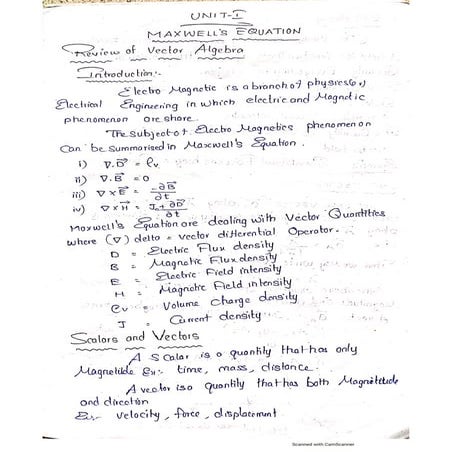 UNIT-I
MAXWELL'S EQUATION
Review of Vector Algebra
Introduction:-
Electro Magnetic is a branch of physics (or)
Electrical Engineering in which electric and Magnetic
phenomenon are share.
The subject of Electro Magnetics phenomenon
Can be summarised in Maxwell's Equation.
i) ∇.D̅ = ρv
ii) ∇.B̅ = 0
iii) ∇×E̅ = -∂B̅/∂t
iv) ∇×H̅ = J+∂D̅/∂t
Maxwell's Equation are dealing with Vector Quantities
where (∇) delta = vector differential Operator.
D = Electric Flux density
B = Magnetic Flux density
E = Electric Field intensity
H = Magnetic Field intensity
ρv = Volume charge density
J = Current density
Scalars and Vectors
A Scalar is a quantity that has only
Magnetide Ex:- time, mass, distance.
A vector is a quantity that has both Magnetetude
and direction
Ex:- velocity, force, displacement
Scanned with CamScanner